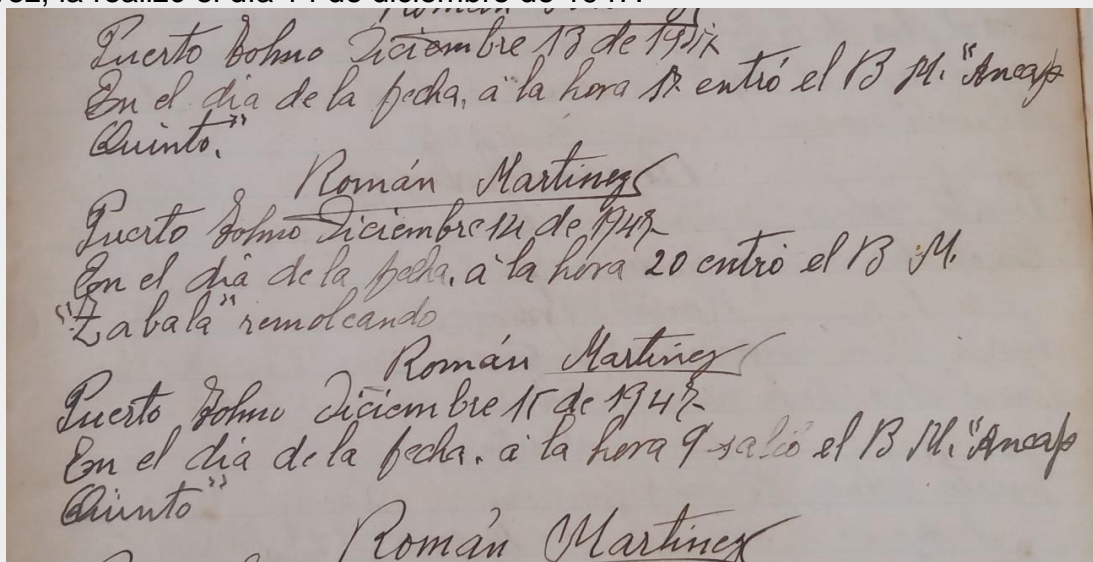 la realizó el día 14 de diciembre de 1947.
Román
Puerto Sohns Diciembre 13 de 1947
En el dia de la fecha, a la hora 17 entró el B M. "Ancap
Quinto."
Román Martinez
Puerto Sohns Diciembre 14 de 1947
En el dia de la fecha, a la hora 20 entró el B M.
"Zabala" remolcando
Román Martinez
Puerto Sohns Diciembre 15 de 1947
En el dia de la fecha, a la hora 9 salió el B M. "Ancap
Quinto"
Román Martinez